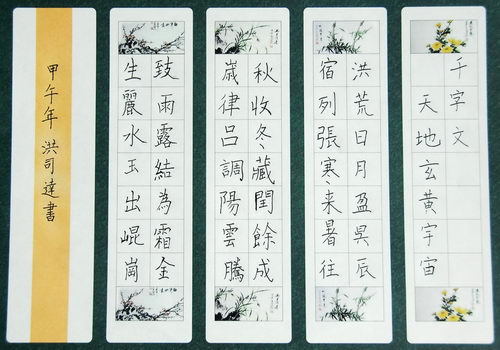 千字文
天地玄黃宇宙
洪荒日月盈昃辰
宿列張寒来暑往
秋收冬藏閏餘成
歲律呂調陽雲騰
致雨露結為霜金
生麗水玉出崐崗
甲午年 洪司達書